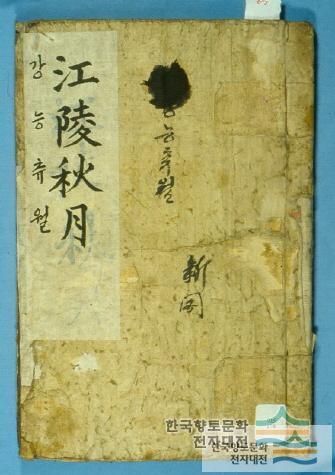 江陵秋月
강능츄월
능츄월
新聞
한국향토문화
전자대전
한국향토문화
전자대전